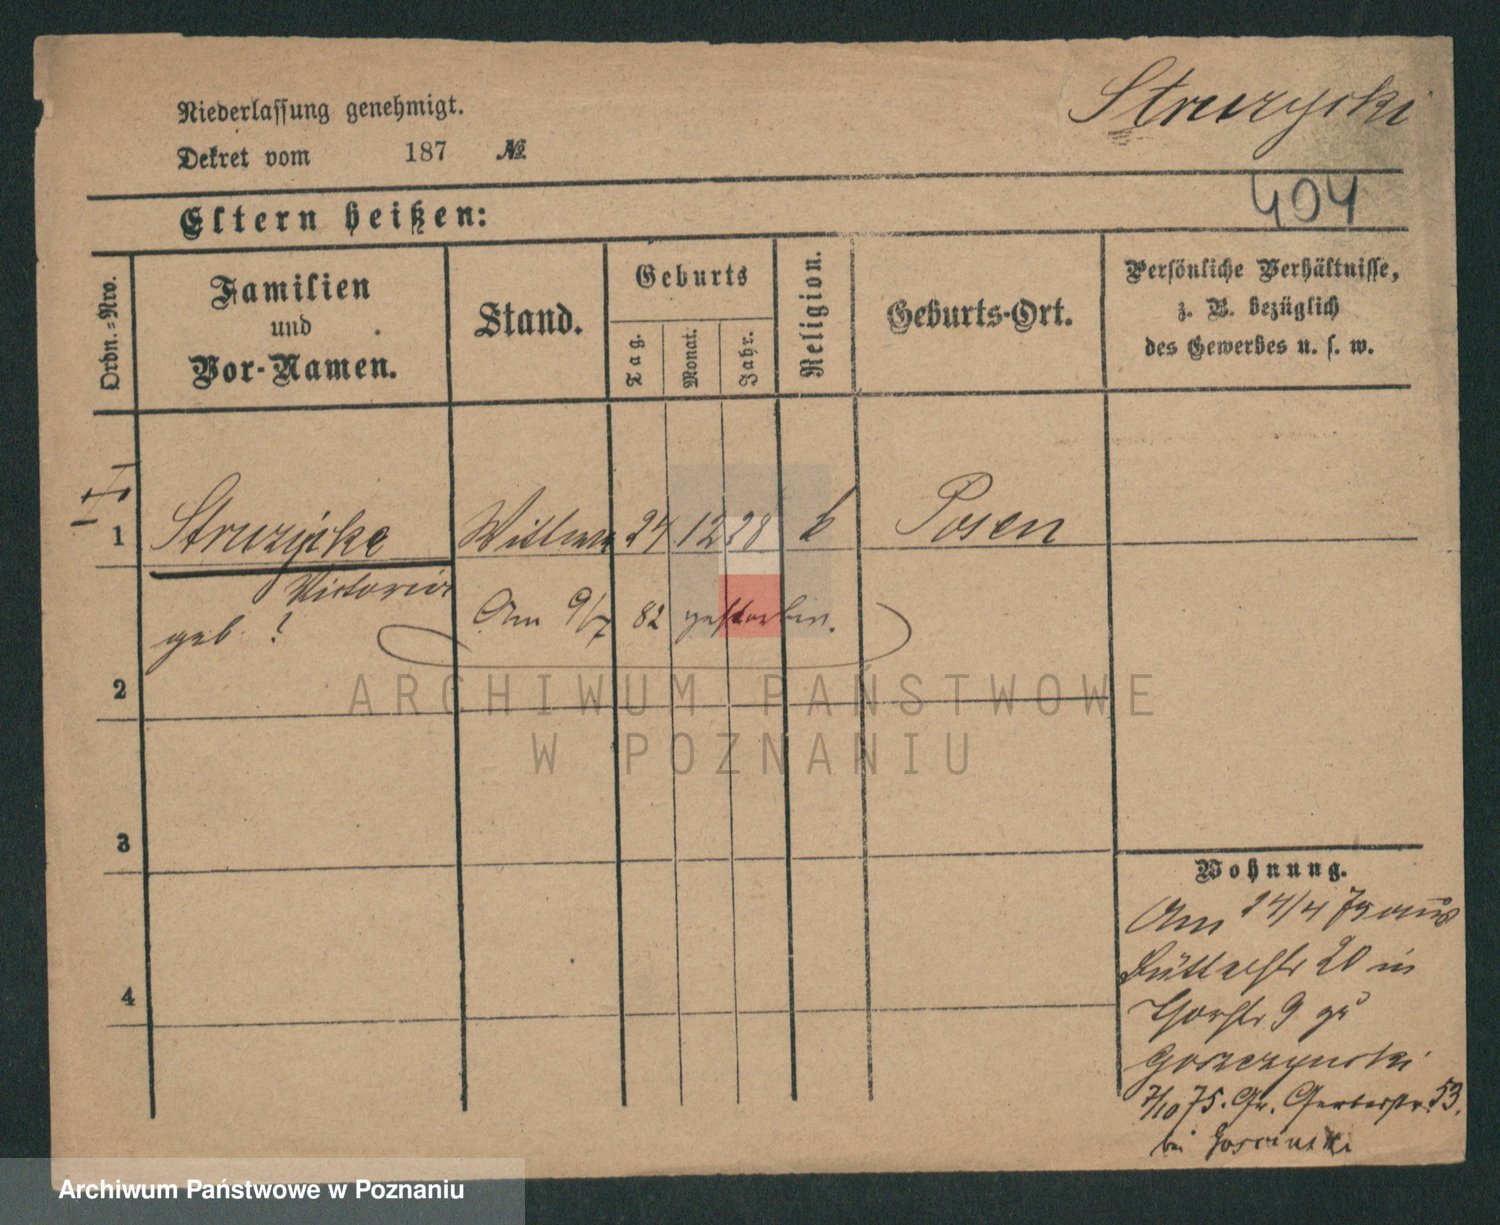 Struzycki
Niederlassung genehmigt.
Dekret vom 187 №
404
Eltern heißen:
Ordn.=Nro.
Familien
und
Vor-Namen.
Stand.
Geburts
Tag.
Monat.
Jahr.
Religion.
Geburts-Ort.
Persönliche Verhältnisse,
z. B. bezüglich
des Gewerbes u. s. w.
1 Struzycka Wittwe 24 12 28 k Posen
Victoria
geb. ?
Am 9/7 82 gestorben.
2
ARCHIWUM PAŃSTWOWE
W POZNANIU
3
4
Wohnung.
Am 24/4 75 aus
Büttelstr 20 in
Thorstr 9 zu
Goszczynski
7/10 75. Gr. Gerberstr. 53.
bei
Archiwum Państwowe w Poznaniu